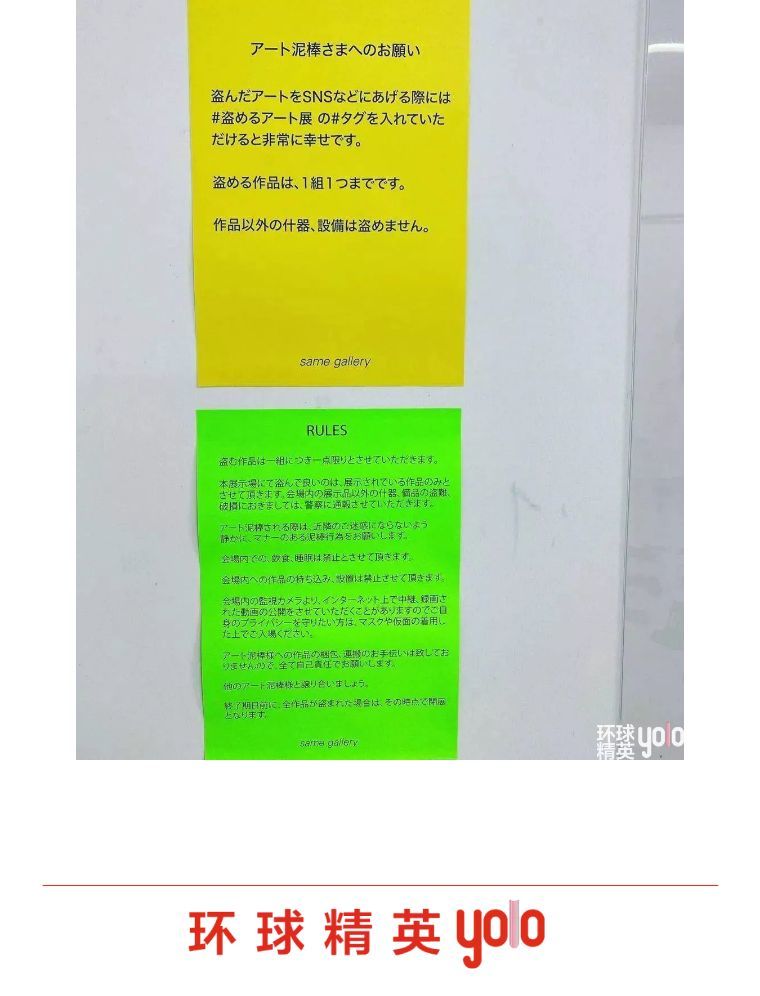 アート泥棒さまへのお願い
盗んだアートをSNSなどにあげる際には
#盗めるアート展 の#タグを入れていた
だけると非常に幸せです。
盗める作品は、1組1つまでです。
作品以外の什器、設備は盗めません。
same gallery
RULES
盗む作品は一組につき一点限りとさせていただきます。
本展示場にて盗んで良いのは、展示されている作品のみと
させて頂きます。会場内の展示品以外の什器、備品の盗難、
破損におきましては、警察に通報させていただきます。
アート泥棒される際は、近隣のご迷惑にならないよう
静かに、マナーのある泥棒行為をお願いします。
会場内での、飲食、睡眠は禁止とさせて頂きます。
会場内への作品の持ち込み、設置は禁止させて頂きます。
会場内の監視カメラより、インターネット上で中継、録画さ
れた動画の公開をさせていただくことがありますのでご自
身のプライバシーを守りたい方は、マスクや仮面の着用し
た上でご入場ください。
アート泥棒様への作品の梱包、運搬のお手伝いは致してお
りませんので、全て自己責任でお願いします。
他のアート泥棒様と譲り合いましょう。
終了期日前に、全作品が盗まれた場合は、その時点で閉廊
となります。
same gallery
环球
精英yolo
环球精英yolo